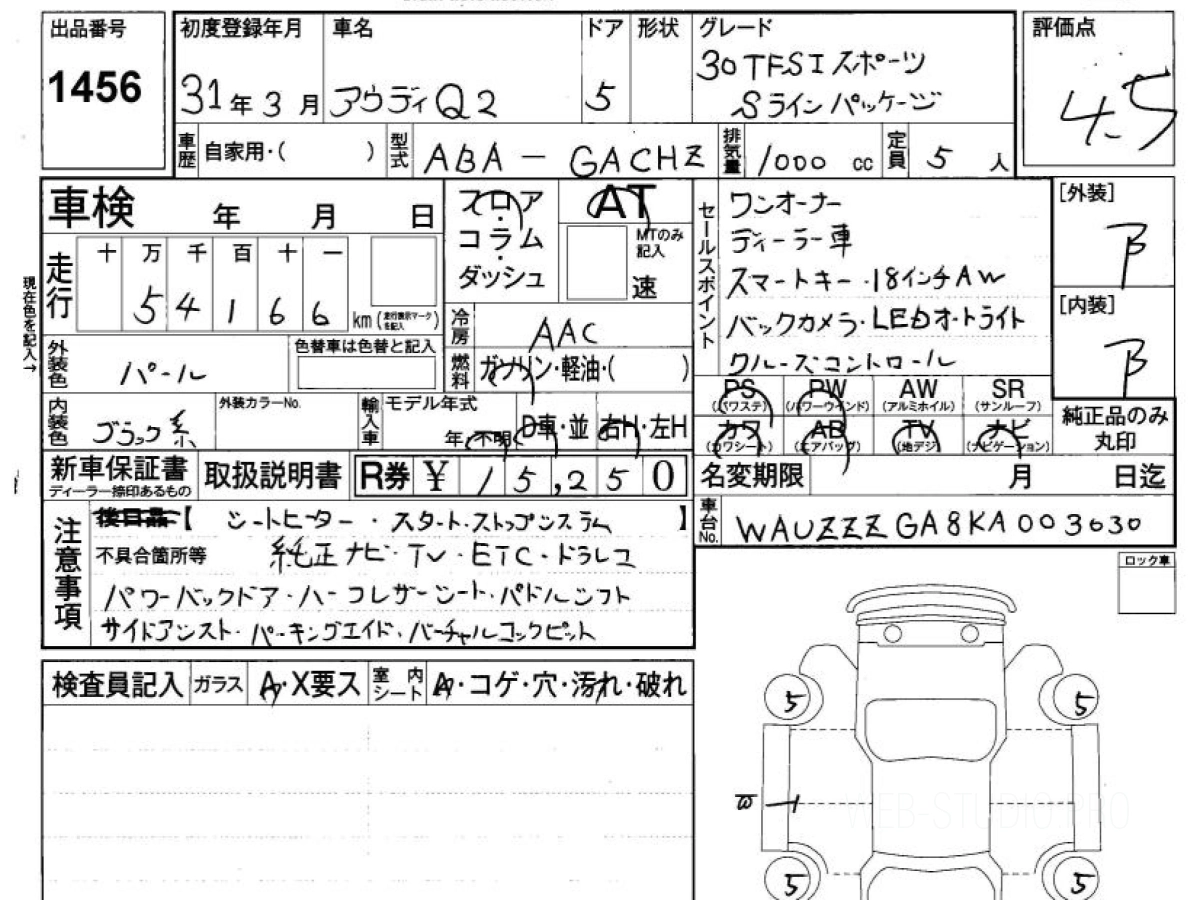 出品番号
1456
初度登録年月
31年3月
車名
アウディQ2
ドア
5
形状
グレード
30TFSIスポーツ
Sラインパッケージ
評価点
4.5
車歴
自家用・( )
型式
ABA-GACHZ
排気量
1000 cc
定員
5 人
車検 年 月 日
走行
十 万 千 百 十 一
5 4 1 6 6
km(走行表示マークを記入)
現在色を記入→
外装色
パール
色替車は色替と記入
内装色
ブラック系
外装カラーNo.
輸入車
モデル年式
年・不明
D車・並
右H・左H
フロア・
コラム・
ダッシュ
AT
MTのみ記入
速
冷房
AAC
燃料
ガソリン・軽油・( )
セールスポイント
ワンオーナー
ディーラー車
スマートキー・18インチAW
バックカメラ・LEDオートライト
クルーズコントロール
[外装]
B
[内装]
B
PS
(パワステ)
PW
(パワーウインド)
AW
(アルミホイル)
SR
(サンルーフ)
カワ
(カワシート)
AB
(エアバッグ)
TV
(地デジ)
ナビ
(ナビゲーション)
純正品のみ
丸印
新車保証書
ディーラー捺印あるもの
取扱説明書
R券 ¥ 15,250
名変期限 月 日迄
車台No.
WAUZZZGA8KA003030
注意事項
後日品【 シートヒーター・スタートストップシステム 】
不具合箇所等 純正ナビ・TV・ETC・ドラレコ
パワーバックドア・ハーフレザーシート・パドルシフト
サイドアシスト・パーキングエイド・バーチャルコックピット
ロック車
検査員記入
ガラス
A・X要ス
室内シート
A・コゲ・穴・汚れ・破れ
5
5
WEB-STUDIO.PRO
5
5